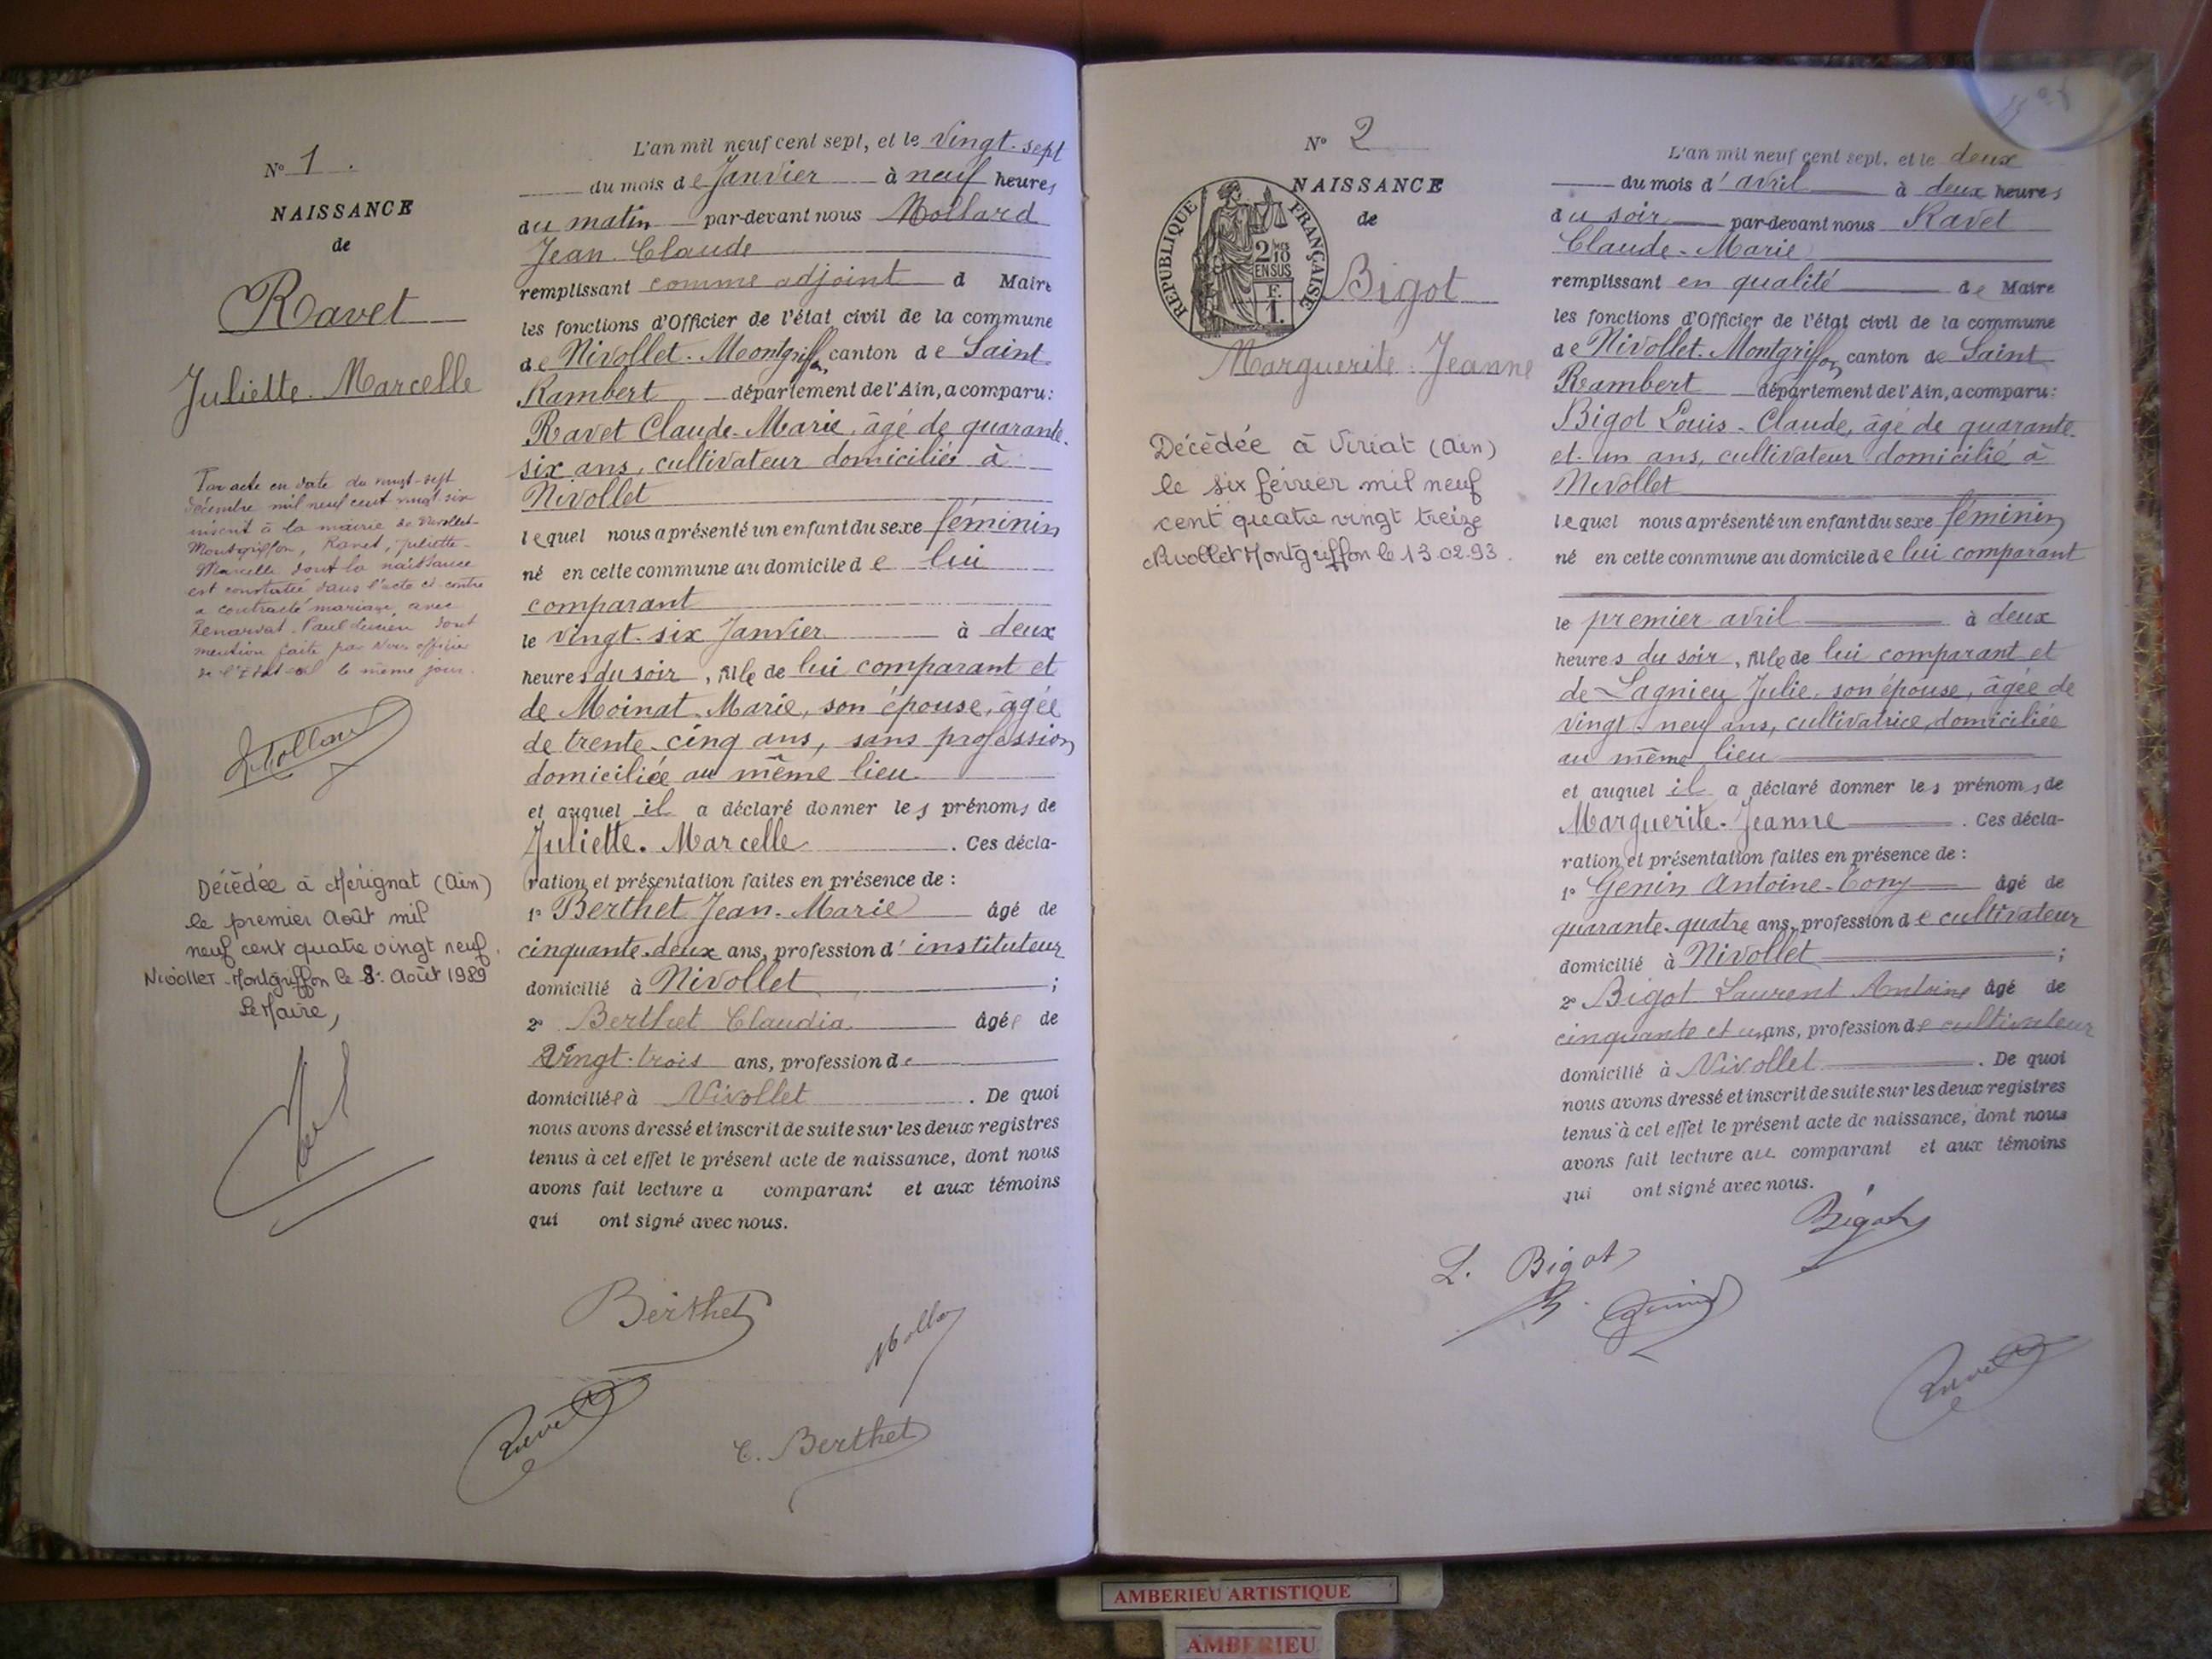 N° 1.
NAISSANCE
de
Ravet
Juliette. Marcelle
Par acte en date du vingt-sept
décembre mil neuf cent vingt six
inscrit à la mairie de Nivollet-
Montgriffon, Ravet, Juliette-
Marcelle dont la naissance
est constatée dans l'acte ci-contre
a contracté mariage avec
Paul Lucien dont
mention faite par Nous officier
de l'Etat civil le même jour.
Mollard
Décédée à Mérignat (Ain)
le premier Août mil
neuf cent quatre vingt neuf.
Nivollet-Montgriffon le 8. Août 1989
Le Maire,
L'an mil neuf cent sept, et le vingt-sept
du mois de Janvier à neuf heures
du matin par-devant nous Mollard
Jean Claude
remplissant comme adjoint d Maire
les fonctions d'Officier de l'état civil de la commune
de Nivollet-Montgriffon, canton de Saint
Rambert département de l'Ain, a comparu:
Ravet Claude-Marie, âgé de quarante-
six ans, cultivateur domicilié à
Nivollet
lequel nous a présenté un enfant du sexe féminin
né en cette commune au domicile de lui
comparant
le vingt-six Janvier à deux
heures du soir, fille de lui comparant et
de Moinat Marie, son épouse, âgée
de trente-cinq ans, sans profession,
domiciliée au même lieu
et auquel il a déclaré donner les prénoms de
Juliette. Marcelle. Ces décla-
ration et présentation faites en présence de :
1° Berthet Jean-Marie âgé de
cinquante-deux ans, profession d'instituteur
domicilié à Nivollet ;
2° Berthet Claudia âgée de
vingt-trois ans, profession de
domiciliée à Nivollet. De quoi
nous avons dressé et inscrit de suite sur les deux registres
tenus à cet effet le présent acte de naissance, dont nous
avons fait lecture a comparant et aux témoins
qui ont signé avec nous.
Berthet
Mollard
Ravet
C. Berthet
N° 2
NAISSANCE
de
REPUBLIQUE FRANÇAISE
2/10 EN SUS
F.
1.
Bigot
Marguerite. Jeanne
Décédée à Viriat (Ain)
le six février mil neuf
cent quatre vingt treize
Nivollet Montgriffon le 13.02.93.
L'an mil neuf cent sept, et le deux
du mois d'avril à deux heures
du soir par-devant nous Ravet
Claude-Marie
remplissant en qualité de Maire
les fonctions d'Officier de l'état civil de la commune
de Nivollet-Montgriffon, canton de Saint
Rambert département de l'Ain, a comparu:
Bigot Louis-Claude, âgé de quarante-
et-un ans, cultivateur domicilié à
Nivollet
lequel nous a présenté un enfant du sexe féminin
né en cette commune au domicile de lui comparant
le premier avril à deux
heures du soir, fille de lui comparant et
de Lagnieu Julie, son épouse, âgée de
vingt-neuf ans, cultivatrice, domiciliée
au même lieu
et auquel il a déclaré donner les prénoms de
Marguerite-Jeanne. Ces décla-
ration et présentation faites en présence de :
1° Genin Antoine-Tony âgé de
quarante-quatre ans, profession de cultivateur
domicilié à Nivollet ;
2° Bigot Laurent Antoine âgé de
cinquante et un ans, profession de cultivateur
domicilié à Nivollet. De quoi
nous avons dressé et inscrit de suite sur les deux registres
tenus à cet effet le présent acte de naissance, dont nous
avons fait lecture au comparant et aux témoins
qui ont signé avec nous.
Bigot
L. Bigot
Genin
Ravet
AMBERIEU ARTISTIQUE
AMBERIEU